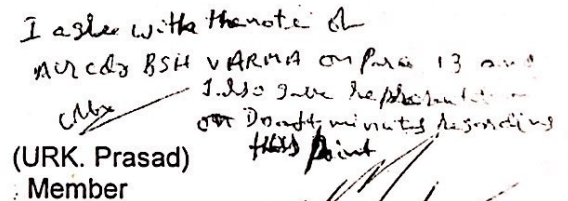 I agree with the note of
BSH VARMA on Para 13 and
I also gave representation
on Draft minutes regarding
this point
(URK. Prasad)
Member